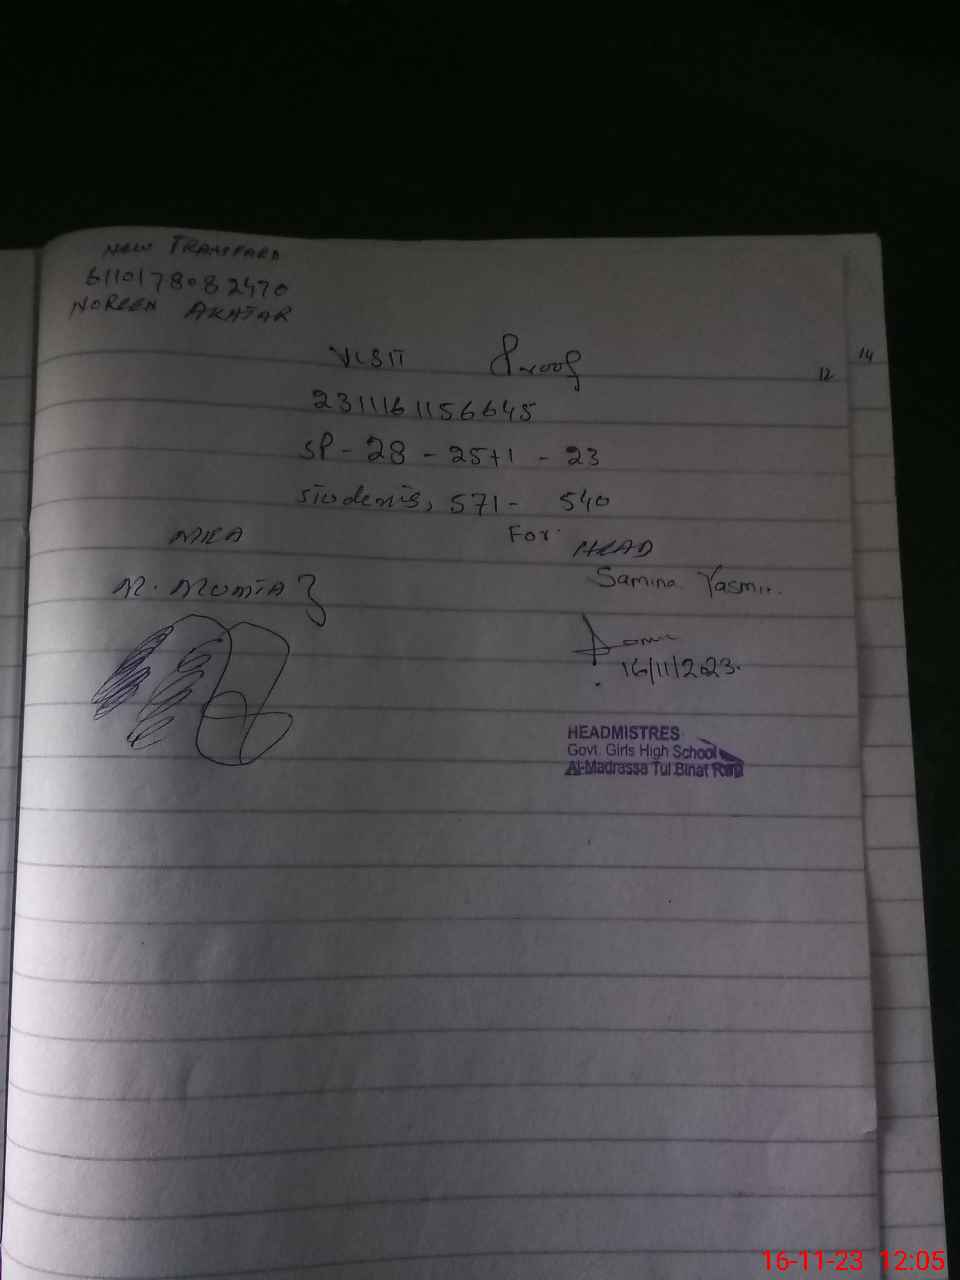 NEW TRANSFARD
6110178082470
NOREEN AKHTAR
VISIT Proof
14
12
2311161156645
SP - 28 - 25+1 - 23
Students, 571 - 540
MEA
For. HEAD
M. MUMTAZ
Samina Yasmin.
16/11/2023.
HEADMISTRES
Govt. Girls High School
Al-Madrassa Tul Binat
16-11-23 12:05